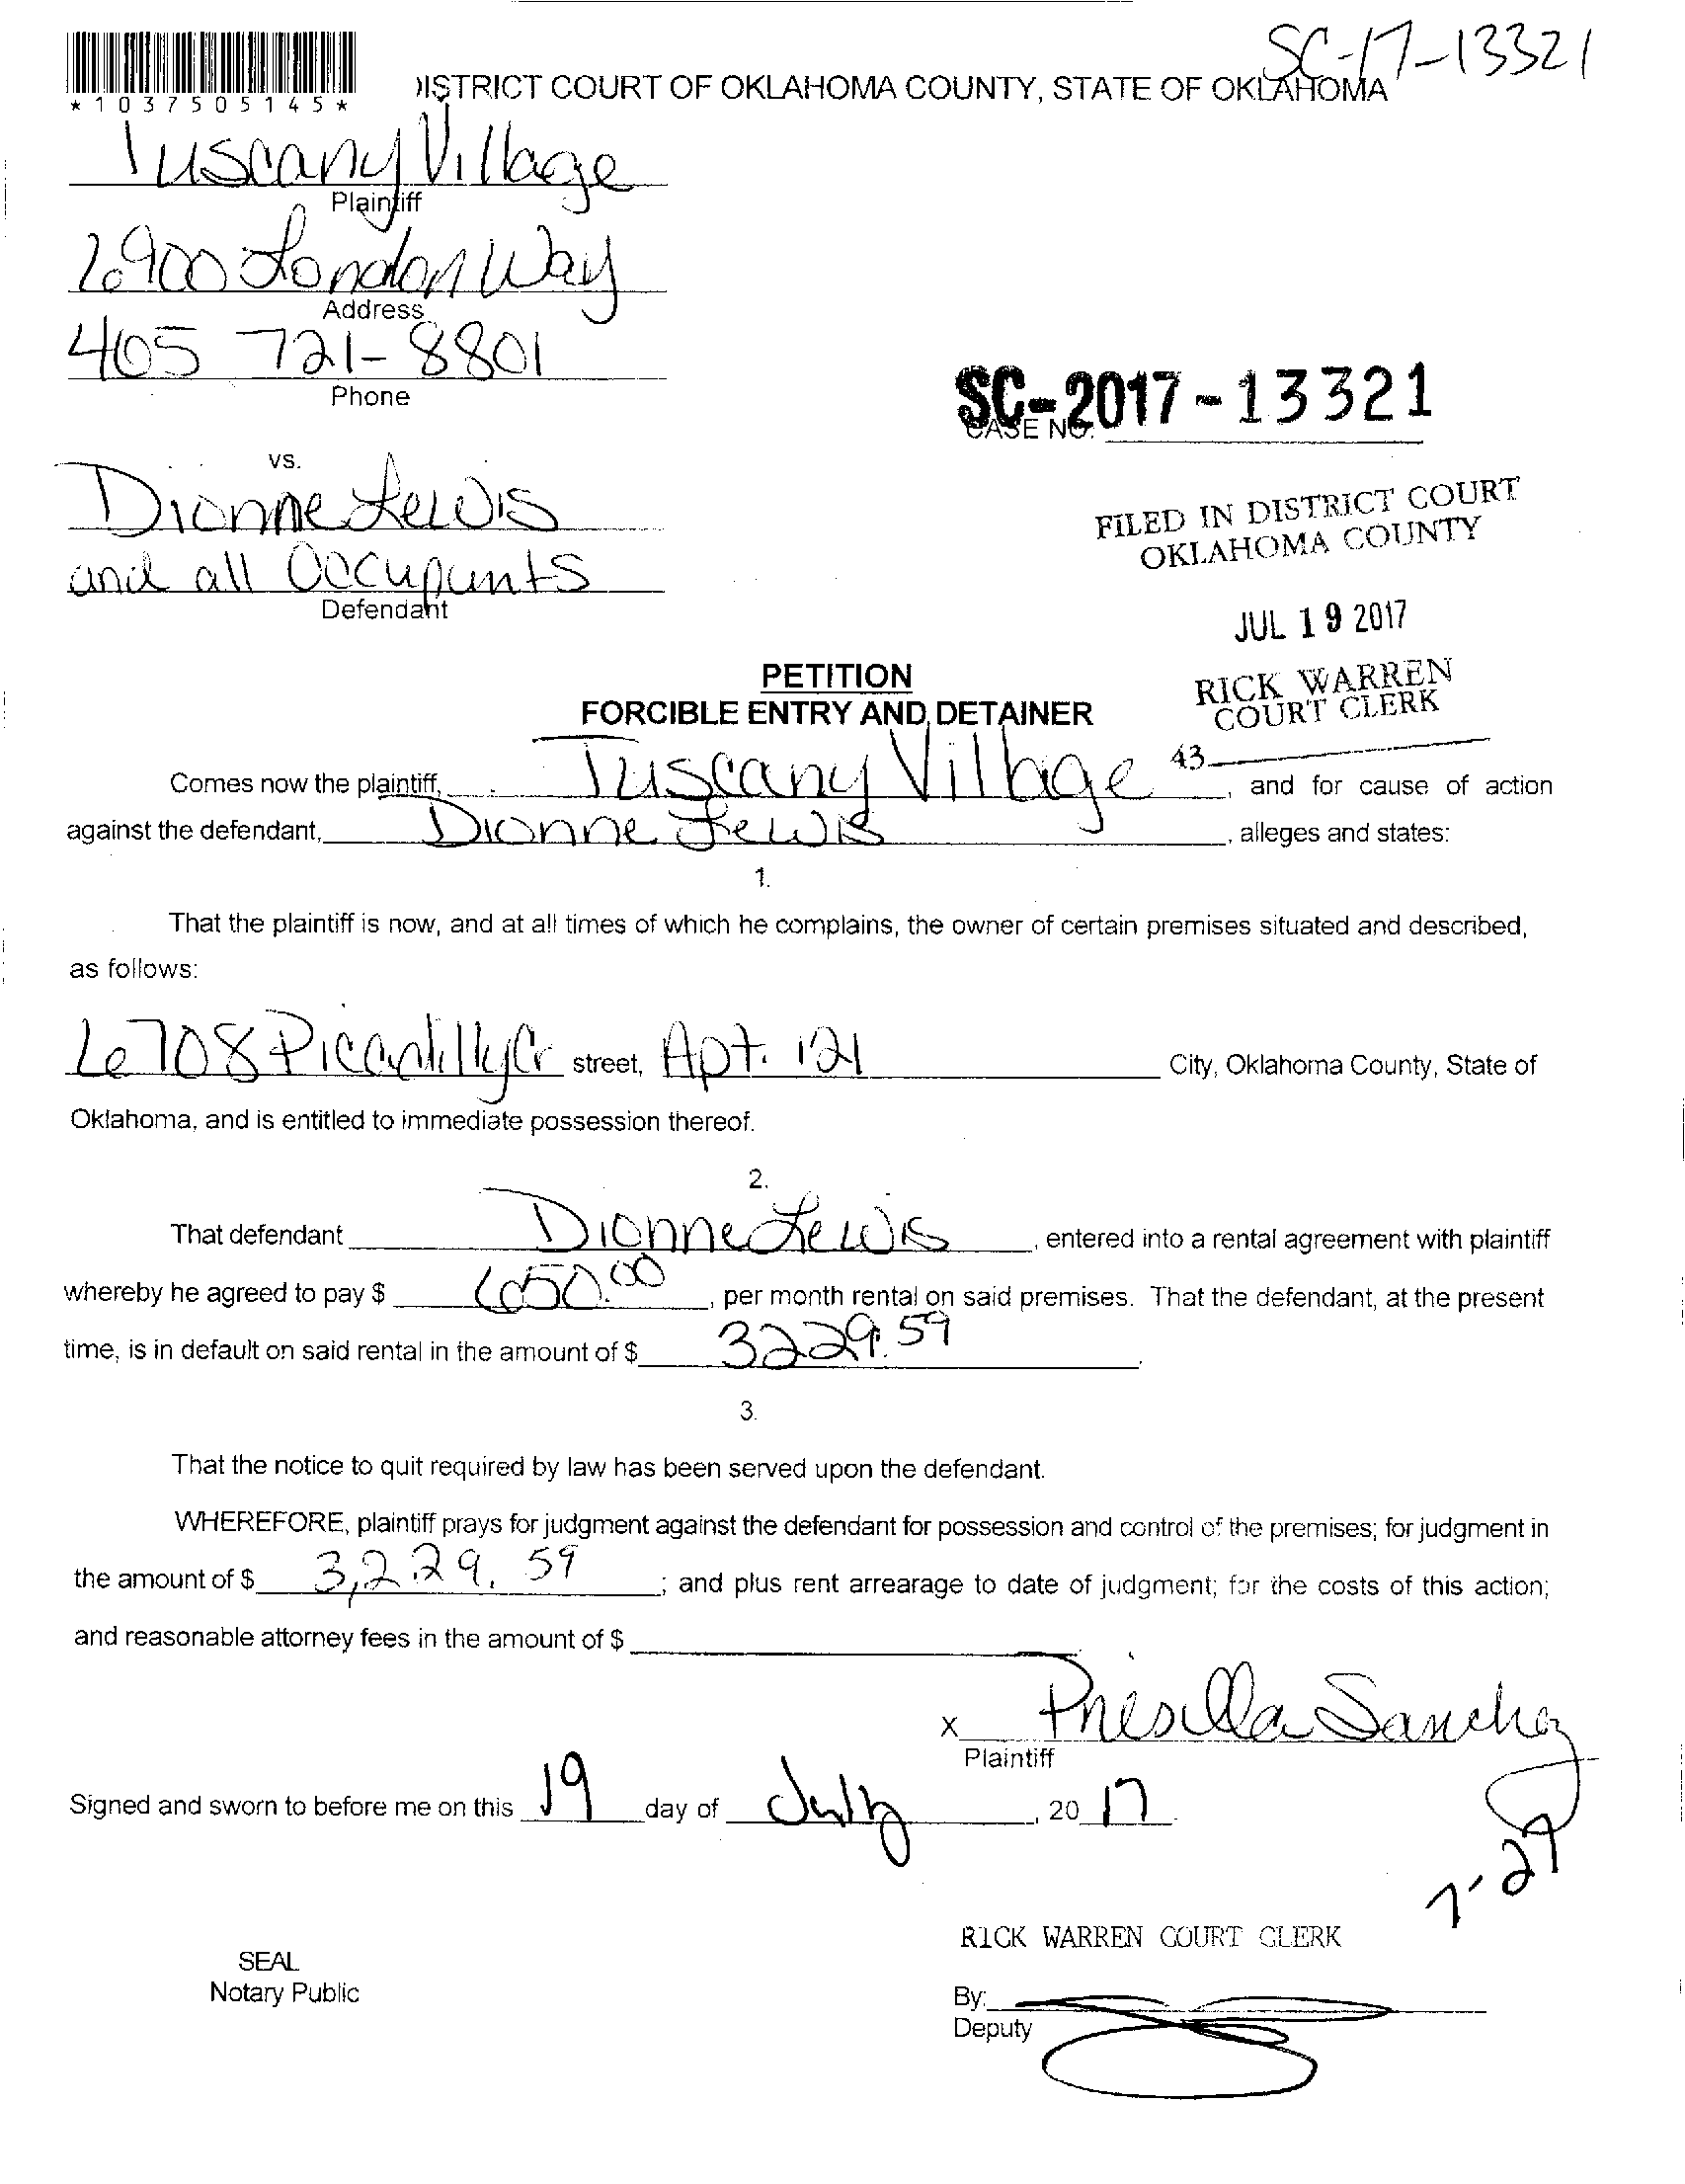 SC-17-13321
*1037505145*
DISTRICT COURT OF OKLAHOMA COUNTY, STATE OF OKLAHOMA
Tuscany Village
Plaintiff
6900 London Way
Address
405 721-8801
Phone
SC-2017-13321
CASE NO.
vs.
Dionne Lewis
and all Occupants
Defendant
FILED IN DISTRICT COURT
OKLAHOMA COUNTY
JUL 19 2017
RICK WARREN
COURT CLERK
43
PETITION
FORCIBLE ENTRY AND DETAINER
Comes now the plaintiff, Tuscany Village, and for cause of action
against the defendant, Dionne Lewis, alleges and states:
1.
That the plaintiff is now, and at all times of which he complains, the owner of certain premises situated and described,
as follows:
6708 Picadilly Cr street, Apt. 121 City, Oklahoma County, State of
Oklahoma, and is entitled to immediate possession thereof.
2.
That defendant Dionne Lewis, entered into a rental agreement with plaintiff
whereby he agreed to pay $ 650.00, per month rental on said premises. That the defendant, at the present
time, is in default on said rental in the amount of $ 3229.59.
3.
That the notice to quit required by law has been served upon the defendant.
WHEREFORE, plaintiff prays for judgment against the defendant for possession and control of the premises; for judgment in
the amount of $ 3,229.59; and plus rent arrearage to date of judgment; for the costs of this action;
and reasonable attorney fees in the amount of $
x Priscilla Sanchez
Plaintiff
Signed and sworn to before me on this 19 day of July, 20 17.
7-27
RICK WARREN COURT CLERK
SEAL
Notary Public
By:
Deputy